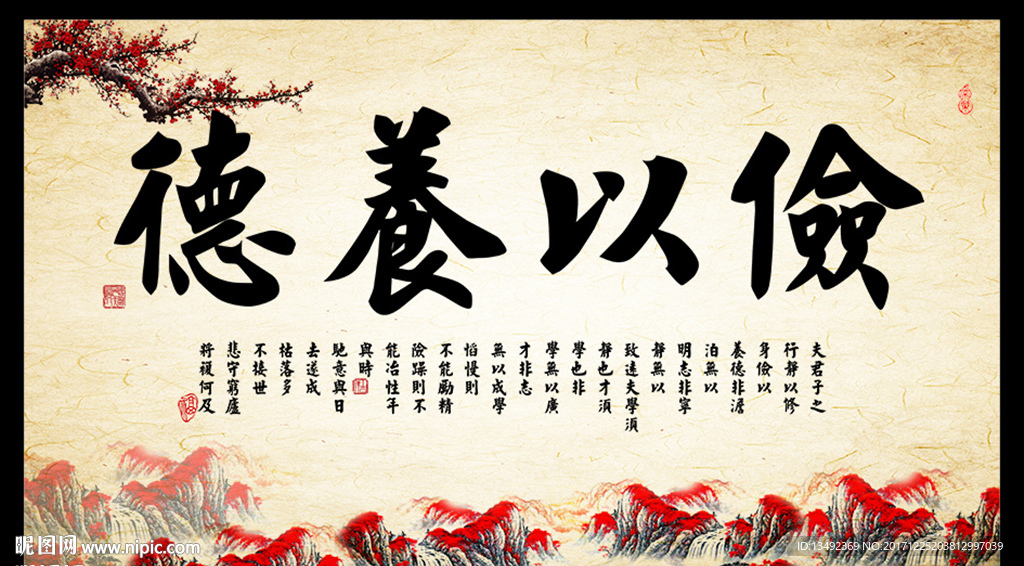 儉以養德
夫君子之
行靜以修
身儉以
養德非澹
泊無以
明志非寧
靜無以
致遠夫學須
靜也才須
學也非
學無以廣
才非志
無以成學
慆慢則
不能勵精
險躁則不
能冶性年
與時
馳意與日
去遂成
枯落多
不接世
悲守窮廬
將複何及
昵图网 www.nipic.com
ID:13492369 NO:20171225203812997039